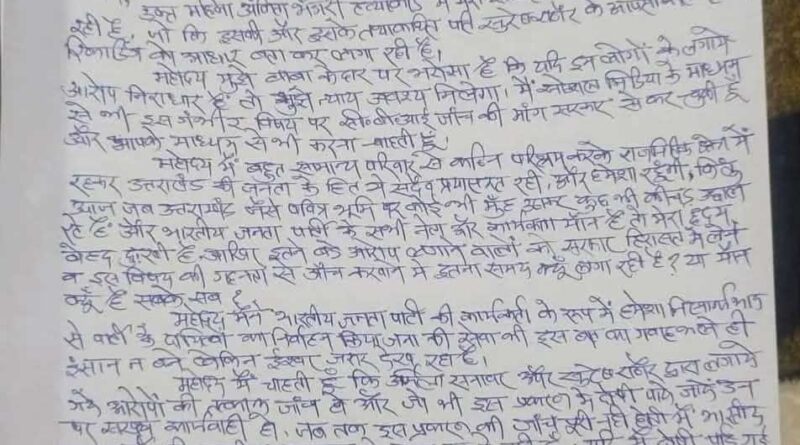 उक्त महिला अंकिता भंडारी हत्याकांड में
रही है, जो कि इसकी और इसके तथाकथित पति सुरेश राठौर के आपसी
रिकार्डिंग को आधार बना कर लगा रही है।
महोदय मुझे बाबा केदार पर भरोसा है कि यदि इन लोगों के लगाये
आरोप निराधार है तो मुझे न्याय अवश्य मिलेगा। मैं सोशल मिडिया के माध्यम
से भी इस गंभीर विषय पर सी०बी०आई जांच की मांग सरकार से कर चुकी हूँ
और आपके माध्यम से भी करना चाहती हूँ
महोदय मैं बहुत सामान्य परिवार से कठिन परिश्रम करके राजनितिक क्षेत्र में
रहकर उत्तराखंड की जनता के हित में सदैव प्रयासरत रही, और हमेशा रहूंगी, किंतु
आज जब उत्तराखंड जैसे पवित्र भूमि पर कोई भी मुँह उठाकर कुछ भी कीचड़ उछाल
रहे है और भारतीय जनता पार्टी के सभी नेता और कार्यकर्ता मौन है तो मेरा हृदय
बेहद दुखी है, आखिर इतने बड़े आरोप लगाने वालों को सरकार हिरासत में लेने
व इस विषय की गहनता से जाँच करवाने में इतना समय क्यूँ लगा रही है? या मौन
क्यूँ है सबके सब है
महोदय मैंने भारतीय जनता पार्टी की कार्यकर्ता के रूप में हमेशा निस्वार्थ भाव
से पार्टी के दायित्वों का निर्वहन किया जनता की सेवा की इस बात का गवाह भले ही
इंसान न बने लेकिन ईश्वर जरूर देख रहा है।
महोदय मैं चाहती हूँ कि उर्मिला सनावर और सुरेश राठौर द्वारा लगाये
गये आरोपों की तत्काल जांच हो और जो भी इस प्रकरण के दोषी पाये जाये उन
पर सख्त कार्यवाही हो। जब तक इस प्रकरण की जाँच पूरी नही होती मैं भारतीय